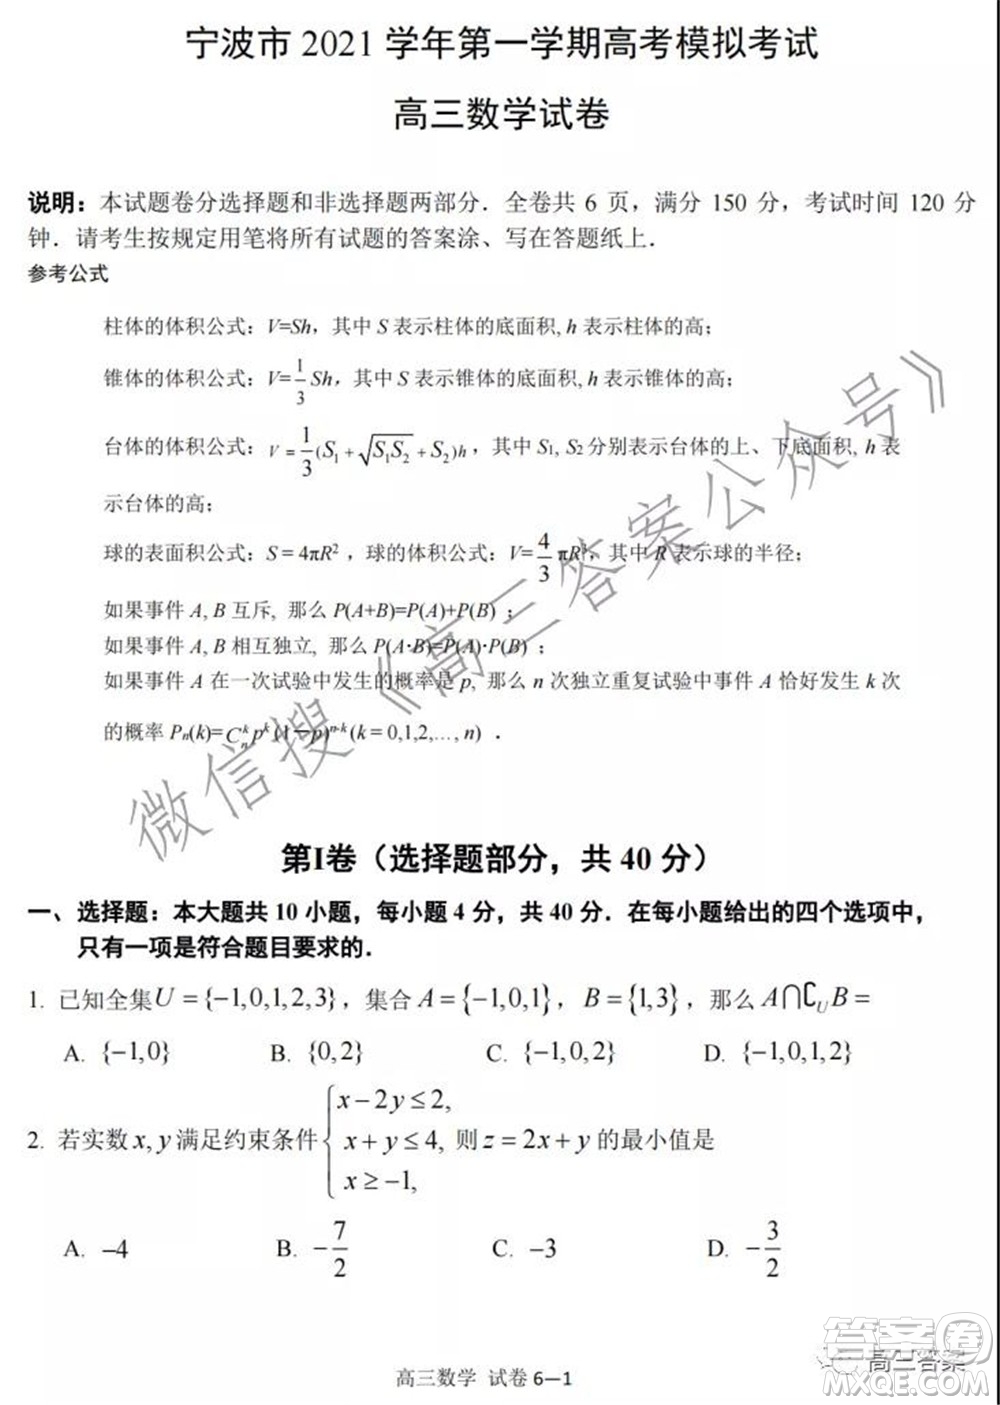 宁波市 2021 学年第一学期高考模拟考试
高三数学试卷
说明：本试题卷分选择题和非选择题两部分．全卷共 6 页，满分 150 分，考试时间 120 分
钟．请考生按规定用笔将所有试题的答案涂、写在答题纸上．
参考公式
柱体的体积公式：V=Sh，其中 S 表示柱体的底面积, h 表示柱体的高；
锥体的体积公式：V=1/3 Sh，其中 S 表示锥体的底面积, h 表示锥体的高；
台体的体积公式：V = 1/3(S₁+√S₁S₂+S₂)h，其中 S₁, S₂ 分别表示台体的上、下底面积, h 表
示台体的高；
球的表面积公式：S = 4πR²，球的体积公式：V=4/3 πR³，其中 R 表示球的半径；
如果事件 A, B 互斥, 那么 P(A+B)=P(A)+P(B) ；
如果事件 A, B 相互独立, 那么 P(A·B)=P(A)·P(B) ；
如果事件 A 在一次试验中发生的概率是 p, 那么 n 次独立重复试验中事件 A 恰好发生 k 次
的概率 Pₙ(k)=Cₙᵏpᵏ(1—p)ⁿ⁻ᵏ(k = 0,1,2,…, n) ．
微信搜《高三答案公众号》
第I卷（选择题部分，共 40 分）
一、选择题：本大题共 10 小题，每小题 4 分，共 40 分．在每小题给出的四个选项中，
只有一项是符合题目要求的．
1. 已知全集U = {−1,0,1,2,3}，集合 A = {−1,0,1}，B = {1,3}，那么 A∩∁ᵤB =
A. {−1,0} B. {0,2} C. {−1,0,2} D. {−1,0,1,2}
2. 若实数 x, y 满足约束条件 { x−2y≤2, x+y≤4, x≥−1, 则 z = 2x + y 的最小值是
A. −4 B. −7/2 C. −3 D. −3/2
高三数学 试卷 6—1
答案圈
高三答案
MXQE.COM